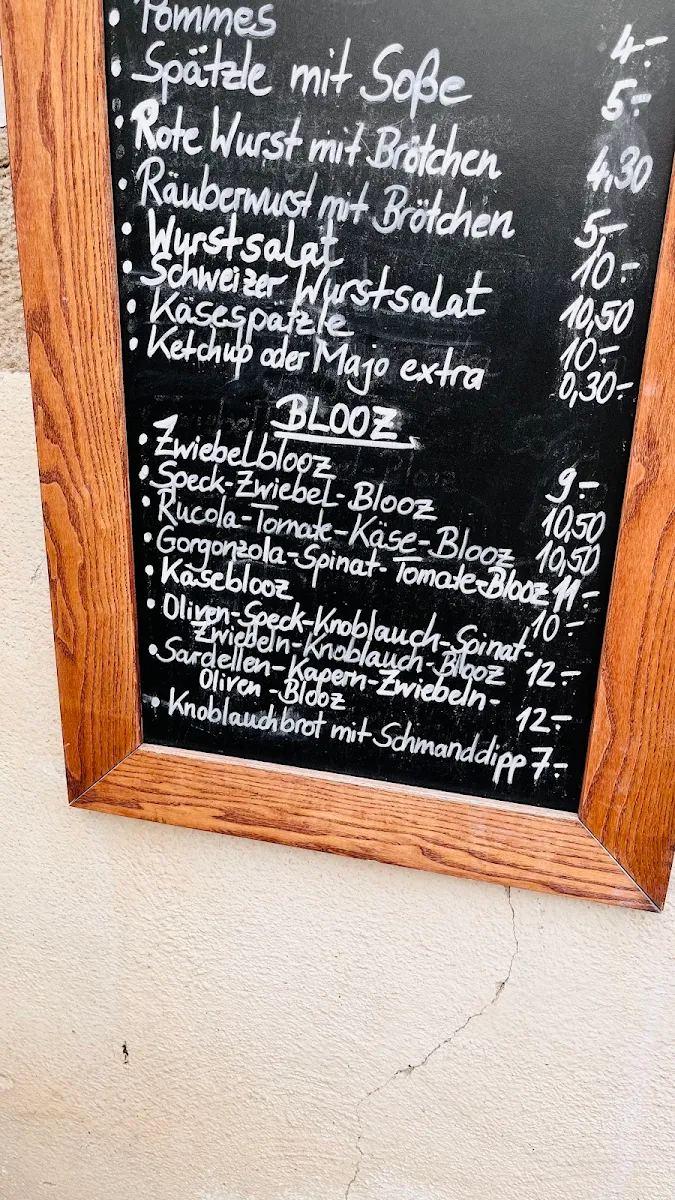 • Pommes 4.-
• Spätzle mit Soße 5.-
• Rote Wurst mit Brötchen 4,30
• Räuberwurst mit Brötchen 5.-
• Wurstsalat 10.-
• Schweizer Wurstsalat 10,50
• Käsespätzle 10.-
• Ketchup oder Majo extra 0,30.-
BLOOZ
• Zwiebelblooz 9.-
• Speck-Zwiebel-Blooz 10,50
• Rucola-Tomate-Käse-Blooz 10,50
• Gorgonzola-Spinat-Tomate-Blooz 11.-
• Käseblooz 10.-
• Oliven-Speck-Knoblauch-Spinat-
Zwiebeln-Knoblauch-Blooz 12.-
• Sardellen-Kapern-Zwiebeln-
Oliven-Blooz 12.-
• Knoblauchbrot mit Schmanddipp 7.-